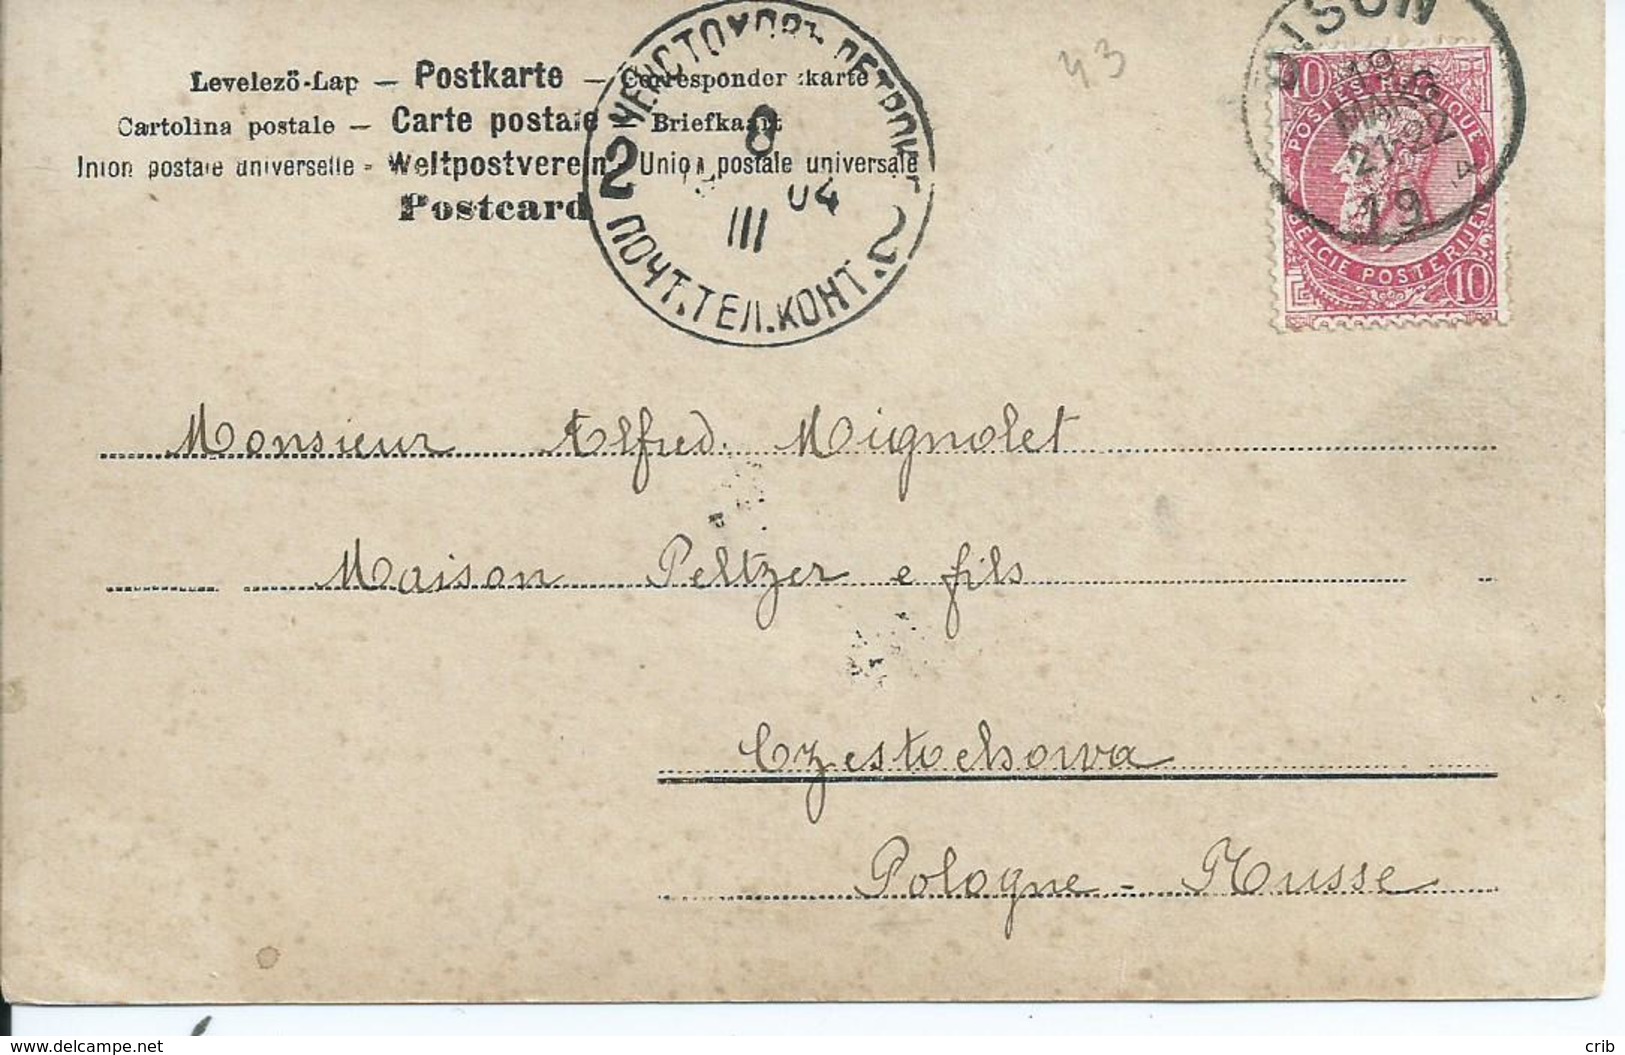 Levelező-Lap — Postkarte — Correspondenzkarte
Cartolina postale — Carte postale — Briefkaart
Union postale universelle - Weltpostverein - Union postale universale
Postcard
ЧЕНСТОХОВЪ ПЕТРОК. Г.
2
8
III 04
ПОЧТ.ТЕЛ.КОНТ. 2
DISON
19
21-22
19 4
10 10
POSTES BELGIQUE
BELGIE POSTERIJEN
10
4.3
Monsieur Alfred. Mignolet
Maison Peltzer e fils
Czestochowa
Pologne - Russe
www.delcampe.net
crib